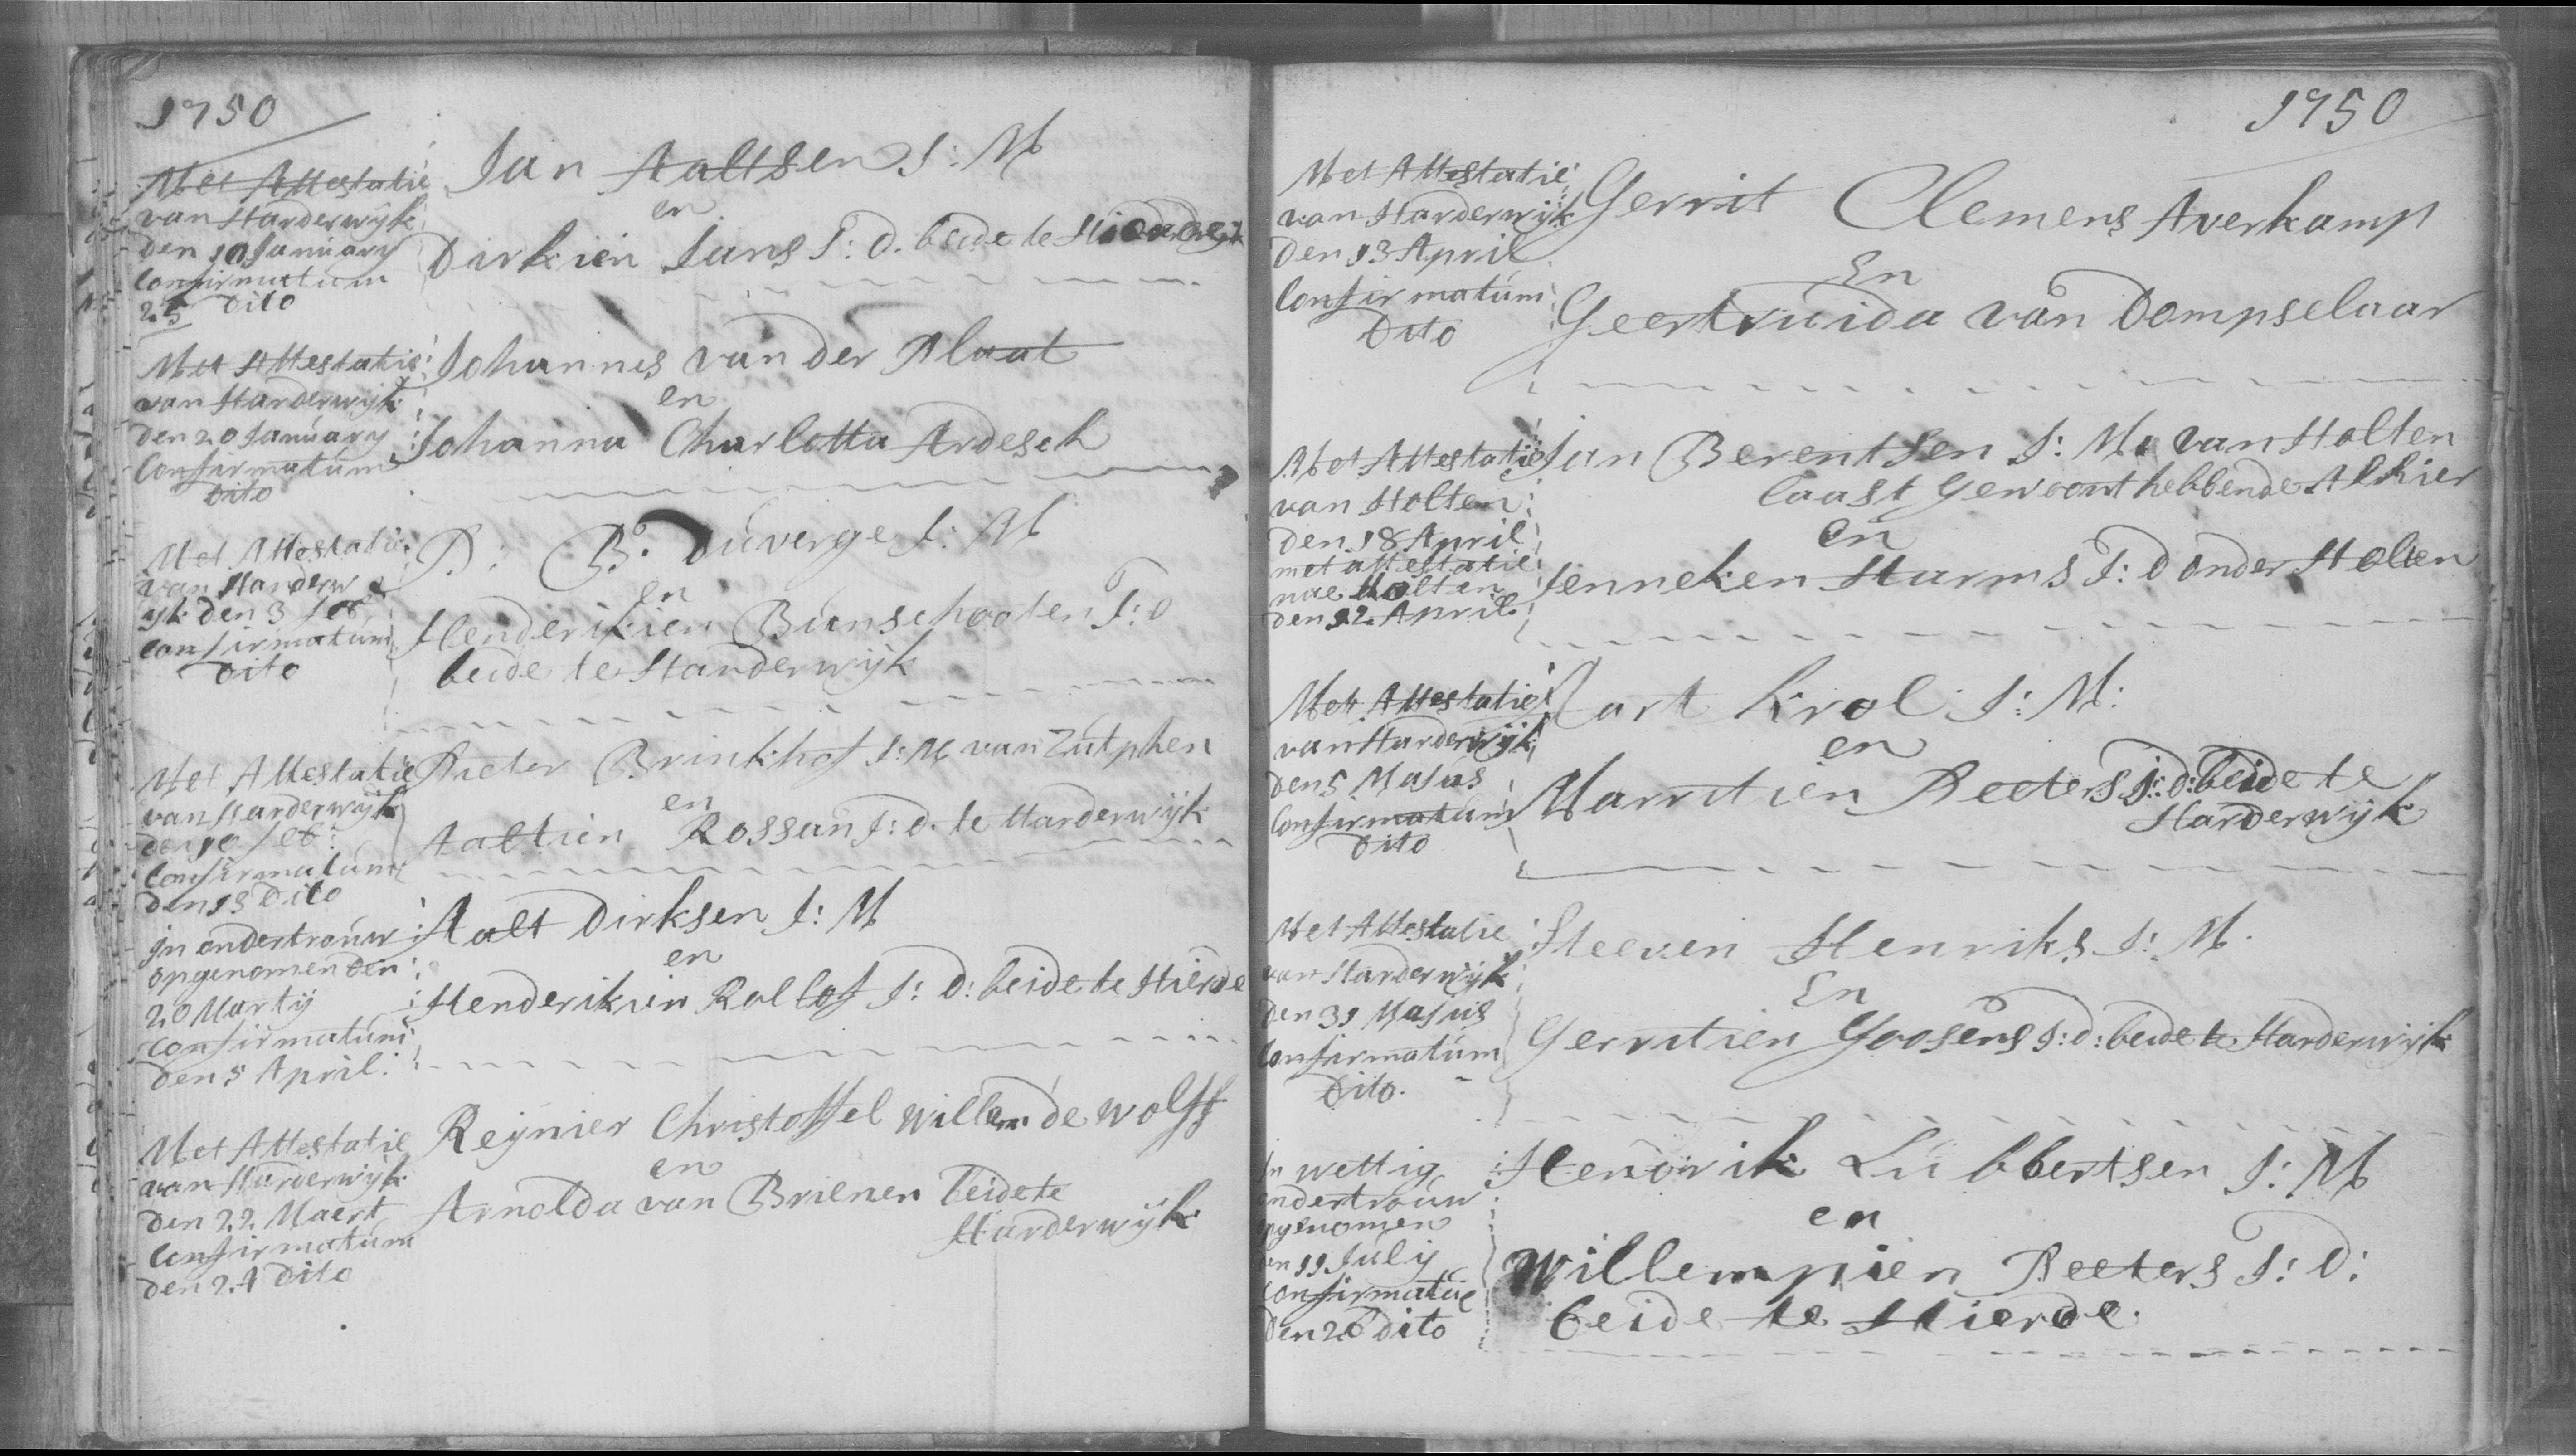 1750
Met Attestatie
van Harderwÿk
den 10 January
Confirmatum
25 dito
Jan Aaltsen J: M
en
Dirkien Jans J: D. beide te
Met Attestatie
van Harderwÿk
den 20 January
Confirmatum
dito
Johannes van der Plaat
en
Johanna Charlotta Ardesch
Met Attestatie
van Harderw
ÿk den 3 feb
Confirmatum
dito
P: B: Duverge J: M
en
Henderikien Bunschooten J: D
beide te Harderwÿk
Met Attestatie
van Harderwÿk
den 10 feb:
Confirmatum
den 13 dito
Pieter Brinkhof J: M van Zutphen
en
Aaltien Rossan J: D. te Harderwÿk
In ondertrouw
opgenomen den
20 Martÿ
Confirmatum
den 5 April:
Aalt Dirksen J: M
en
Henderikien Rollof J: D: beide te Hierde
Met Attestatie
van Harderwÿk
den 22 Maert
Confirmatum
den 24 dito
Reÿnier Christoffel Willem de Wolff
en
Arnolda van Brienen beide te
Harderwÿk
1750
Met Attestatie
van Harderwÿk
den 13 April
Confirmatum
Dito
Gerrit Clemens Averkamp
En
Geertruida van Dompselaar
Met Attestatie
van Holten
den 18 April
met attestatie
nae Holten
den 12 April
Jan Berentsen J: M: van Holten
laast Gewoont hebbende Alhier
en
Jenneken Harms J: D onder Holten
Met Attestatie
van Harderwÿk
den 5 Majus
Confirmatum
Dito
Aart Krol J: M:
en
Marritien Peeters J: D: beide te
Harderwÿk
Met Attestatie
van Harderwÿk
den 31 Majus
Confirmatum
Dito.
Steeven Henriks J: M.
En
Gerritien Goosens J: D: beide te Harderwÿk
In wettig
ondertrouw
opgenomen
den 11 Julÿ
Confirmatie
Den 26 dito
Hendrik Lubbertsen J: M
en
Willempien Peeters J: D:
beide te Hierde.